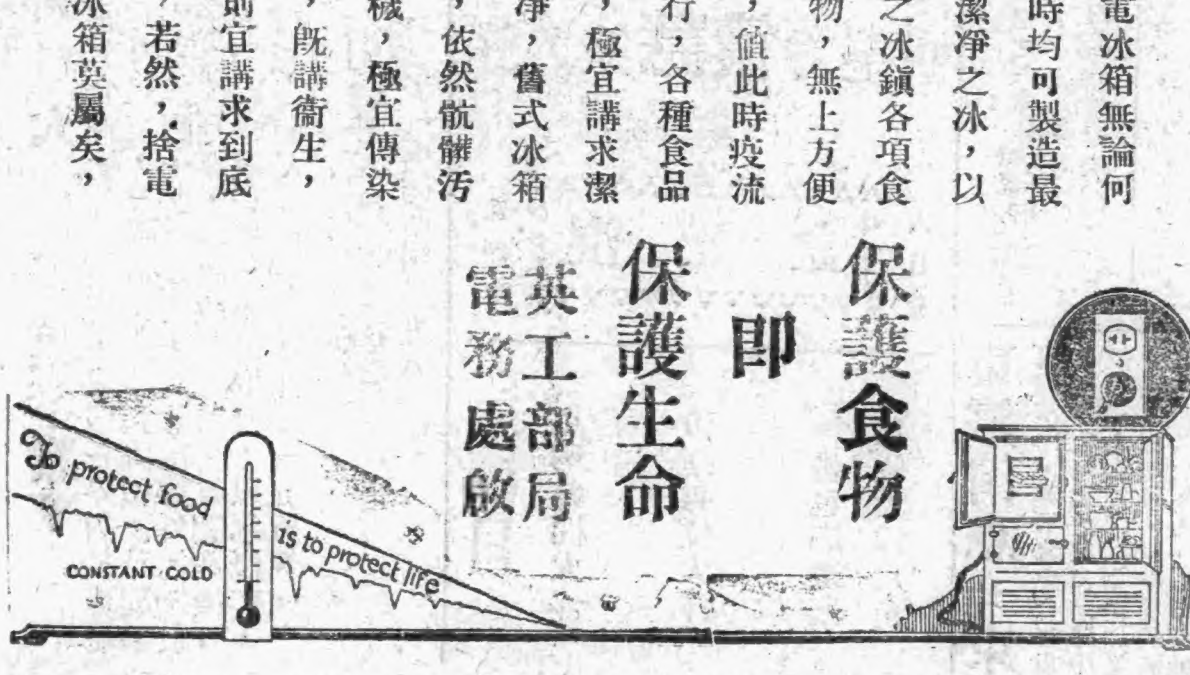 電冰箱無論何
時均可製造最
潔凈之冰，以
之冰鎮各項食
物，無上方便
，值此時疫流
行，各種食品
，極宜講求潔
凈，舊式冰箱
，依然骯髒汚
穢，極宜傳染
，旣講衞生，
則宜講求到底
，若然，捨電
冰箱英屬矣，
保護食物
即
保護生命
英工部局
電務處啟
To protect food
is to protect life
CONSTANT COLD